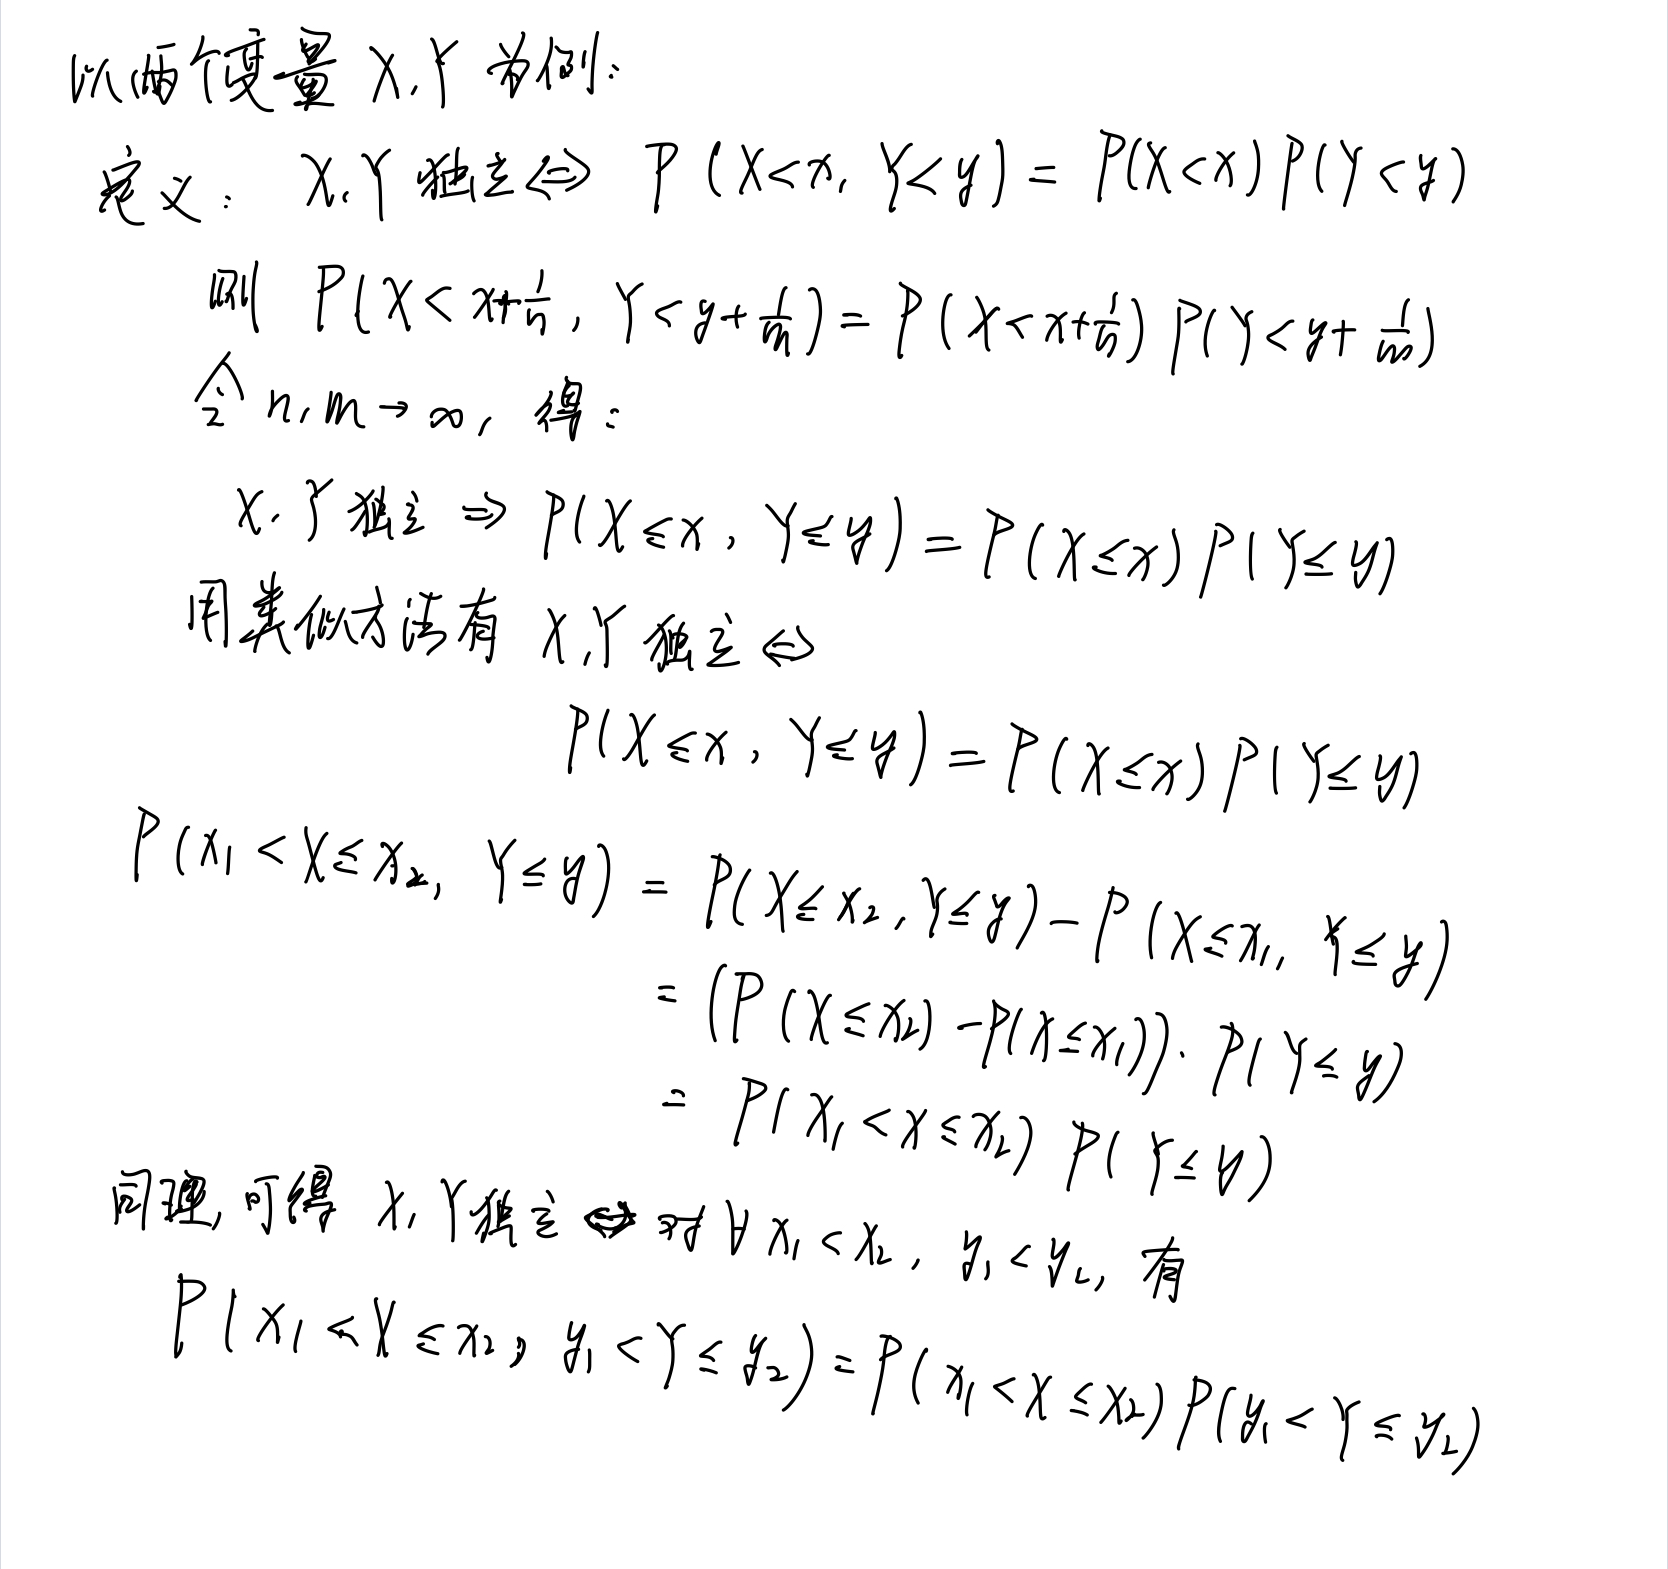 以两个变量 X,Y 为例:
定义: X,Y 独立⇔ P(X<x, Y<y) = P(X<x)P(Y<y)
则 P(X<x+1/n, Y<y+1/m) = P(X<x+1/n) P(Y<y+1/m)
令 n,m→∞, 得:
X,Y 独立 ⇒ P(X≤x, Y≤y) = P(X≤x)P(Y≤y)
用类似方法有 X,Y 独立⇔
P(X≤x, Y≤y) = P(X≤x)P(Y≤y)
P(x₁<X≤x₂, Y≤y) = P(X≤x₂,Y≤y) - P(X≤x₁, Y≤y)
= (P(X≤x₂) - P(X≤x₁))·P(Y≤y)
= P(x₁<X≤x₂) P(Y≤y)
同理,可得 X,Y独立⇔对∀x₁<x₂, y₁<y₂, 有
P(x₁<X≤x₂, y₁<Y≤y₂) = P(x₁<X≤x₂)P(y₁<Y≤y₂)